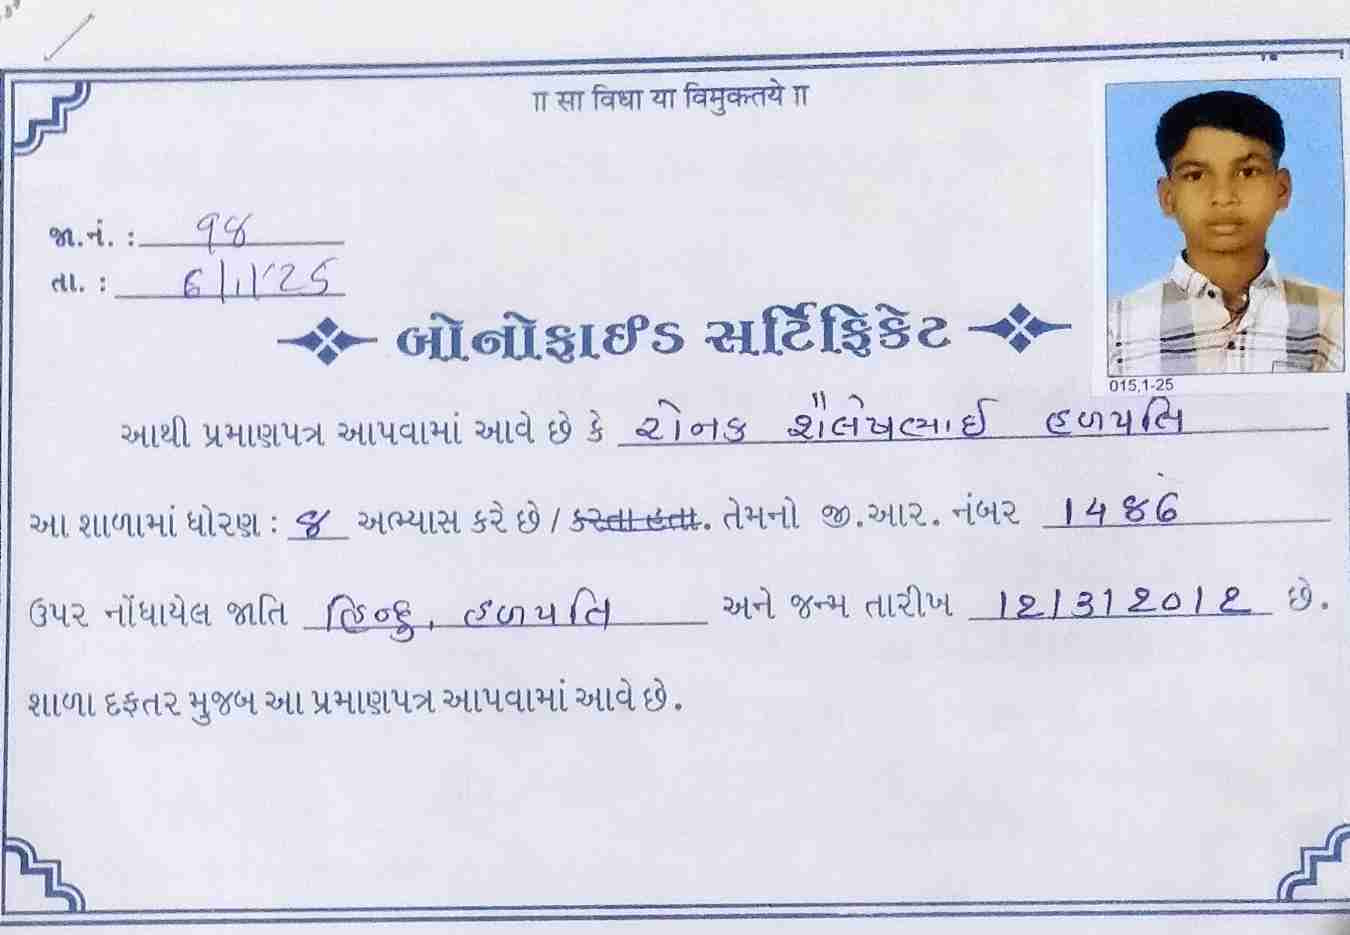 ॥ सा विधा या विमुकतये ॥
જા.નં. : ૧૪
તા. : 6/1/'25
બોનોફાઈડ સર્ટિફિકેટ
015,1-25
આથી પ્રમાણપત્ર આપવામાં આવે છે કે રોનક શૈલેષભાઈ હળપતિ
આ શાળામાં ધોરણ : ૪ અભ્યાસ કરે છે / કરતા હતા. તેમનો જી.આર. નંબર
ઉપર નોંધાયેલ જાતિ હિન્દુ, હળપતિ અને જન્મ તારીખ 12/3/2012 છે.
શાળા દફતર મુજબ આ પ્રમાણપત્ર આપવામાં આવે છે.